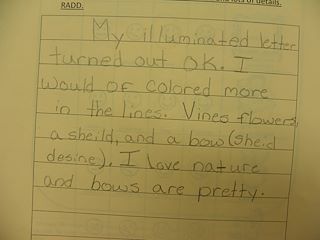 and lots of details.
RADD.
My illuminated letter
turned out OK. I
would of colored more
in the lines. Vines flowers,
a sheild, and a bow (sheid
desine). I love nature
and bows are pretty.